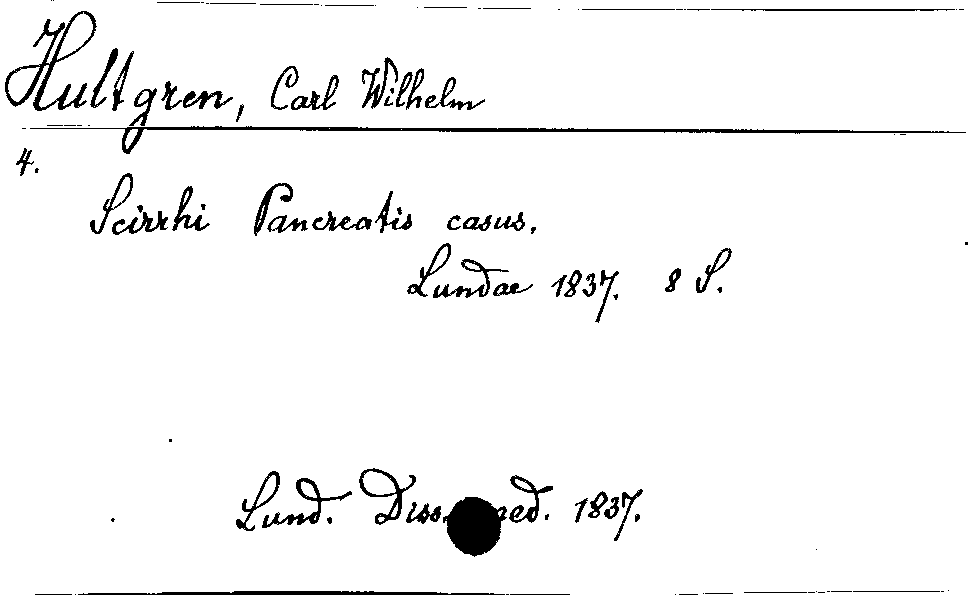 Hultgren, Carl Wilhelm
4.
Scirrhi Pancreatis casus.
Lundae 1837. 8 S.
Lund. Diss. med. 1837.